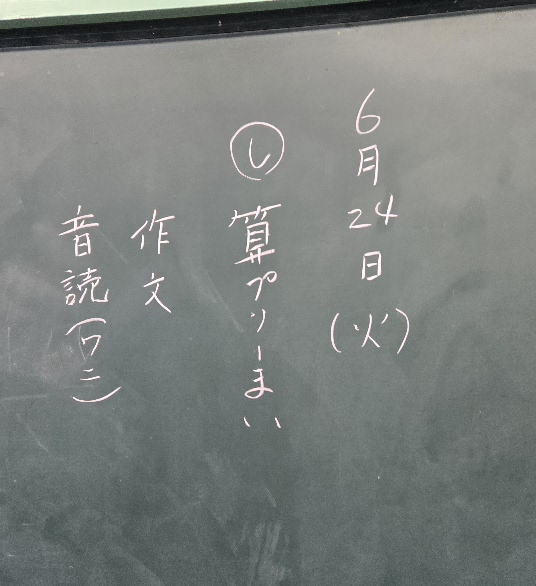 6月24日(火)
し 算プリ一まい
作文
音読(ワニ)